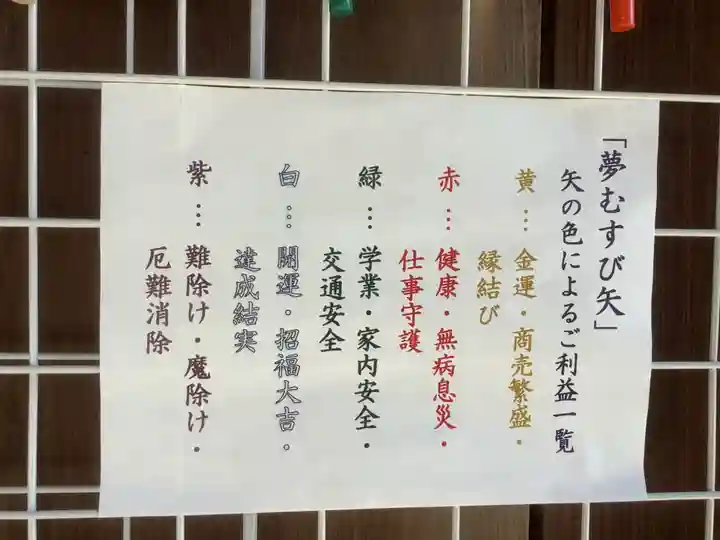 「夢むすび矢」
矢の色によるご利益一覧
黄…金運・商売繁盛・
縁結び
赤…健康・無病息災・
仕事守護
緑…学業・家内安全・
交通安全
白…開運・招福大吉・
達成結実
紫…難除け・魔除け・
厄難消除